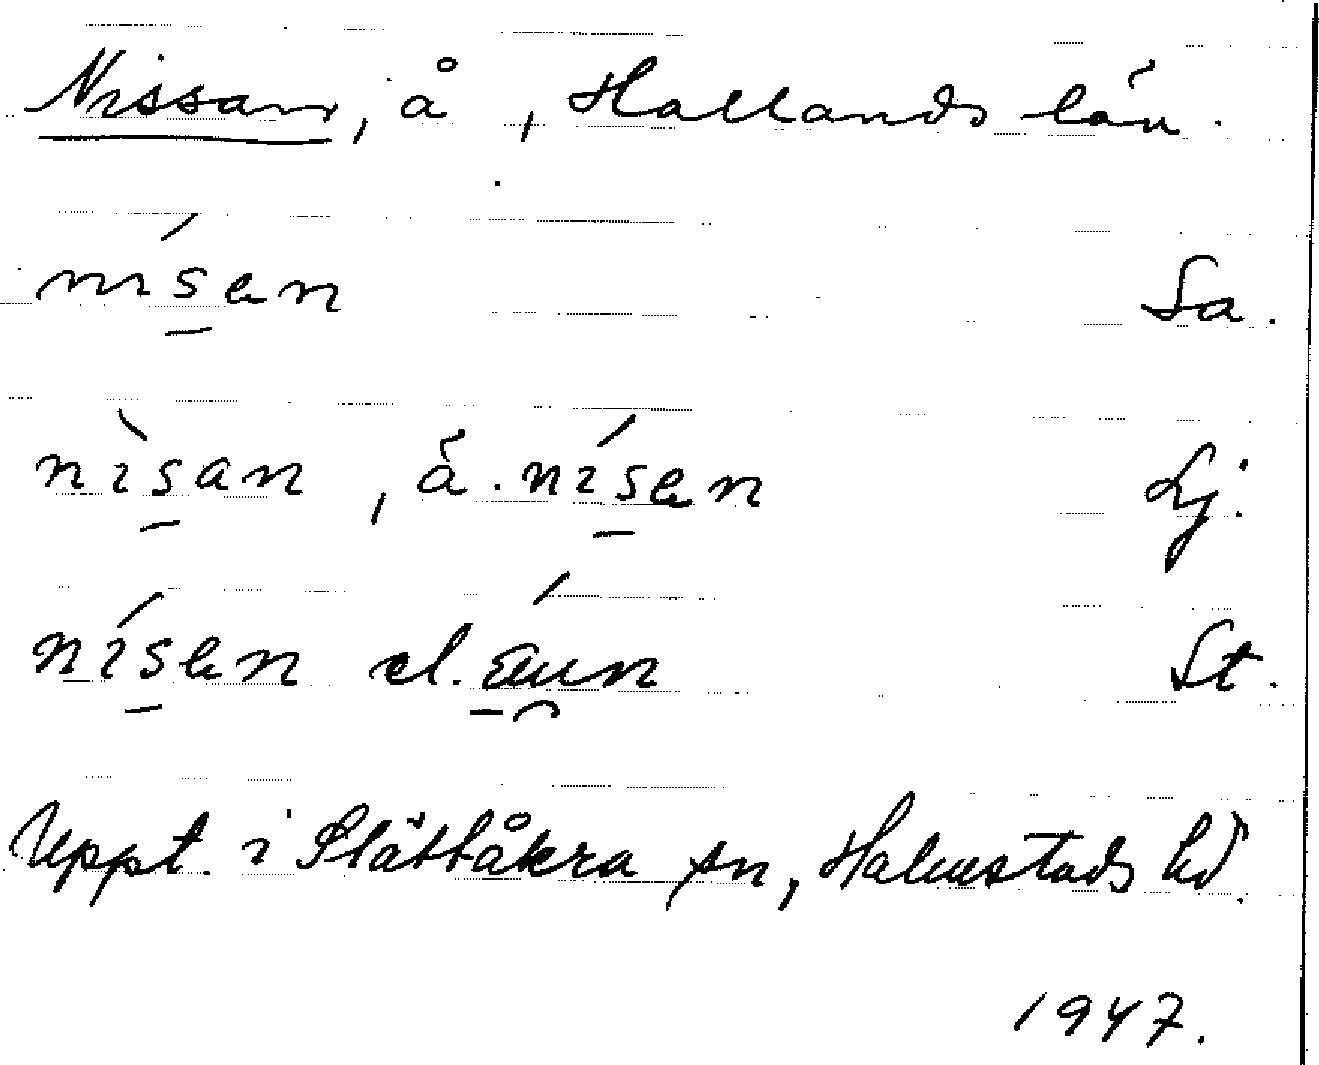 Nissan, å, Hallands län.
nísan Sa.
nìsan, ä. nísan Lj.
nísan el. St.
Uppt. i Slättåkra sn, Halmstads hd.
1947.